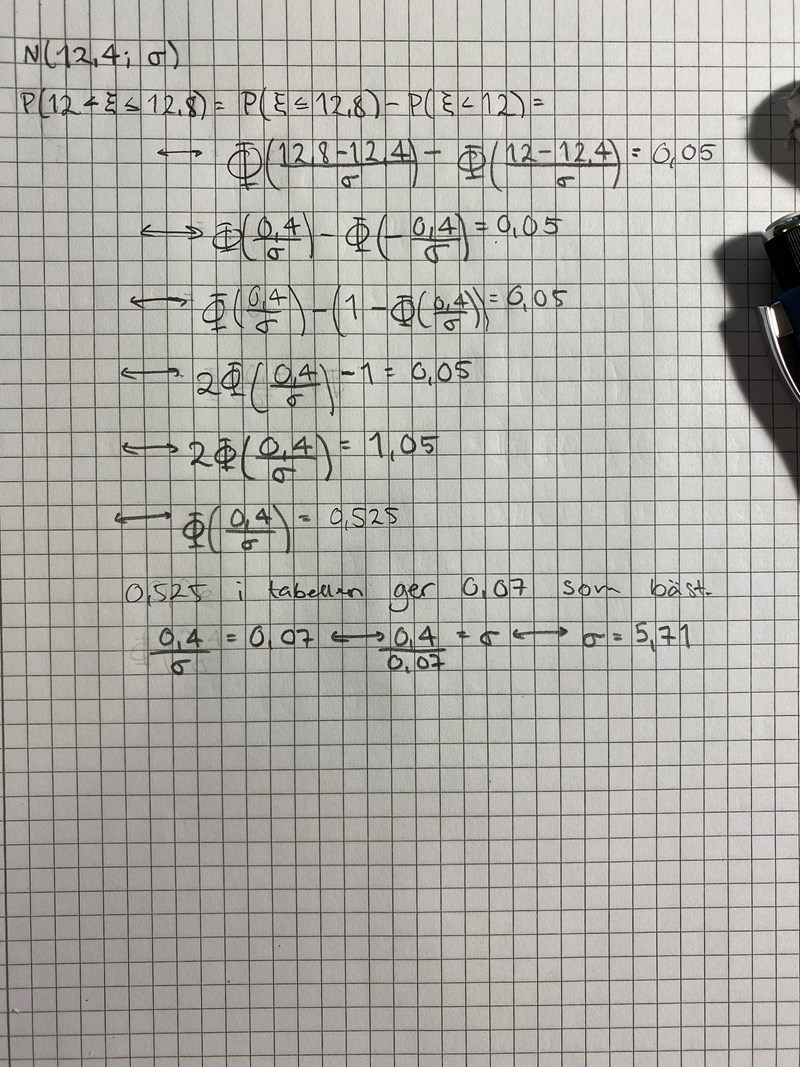 N(12,4; σ)
P(12 < ξ ≤ 12,8) = P(ξ ≤ 12,8) - P(ξ < 12) =
⟷ Φ(12,8-12,4/σ) - Φ(12-12,4/σ) = 0,05
⟷ Φ(0,4/σ) - Φ(-0,4/σ) = 0,05
⟷ Φ(0,4/σ) - (1 - Φ(0,4/σ)) = 0,05
⟷ 2Φ(0,4/σ) - 1 = 0,05
⟷ 2Φ(0,4/σ) = 1,05
⟷ Φ(0,4/σ) = 0,525
0,525 i tabellen ger 0,07 som bäst.
0,4/σ = 0,07 ⟷ 0,4/0,07 = σ ⟷ σ = 5,71